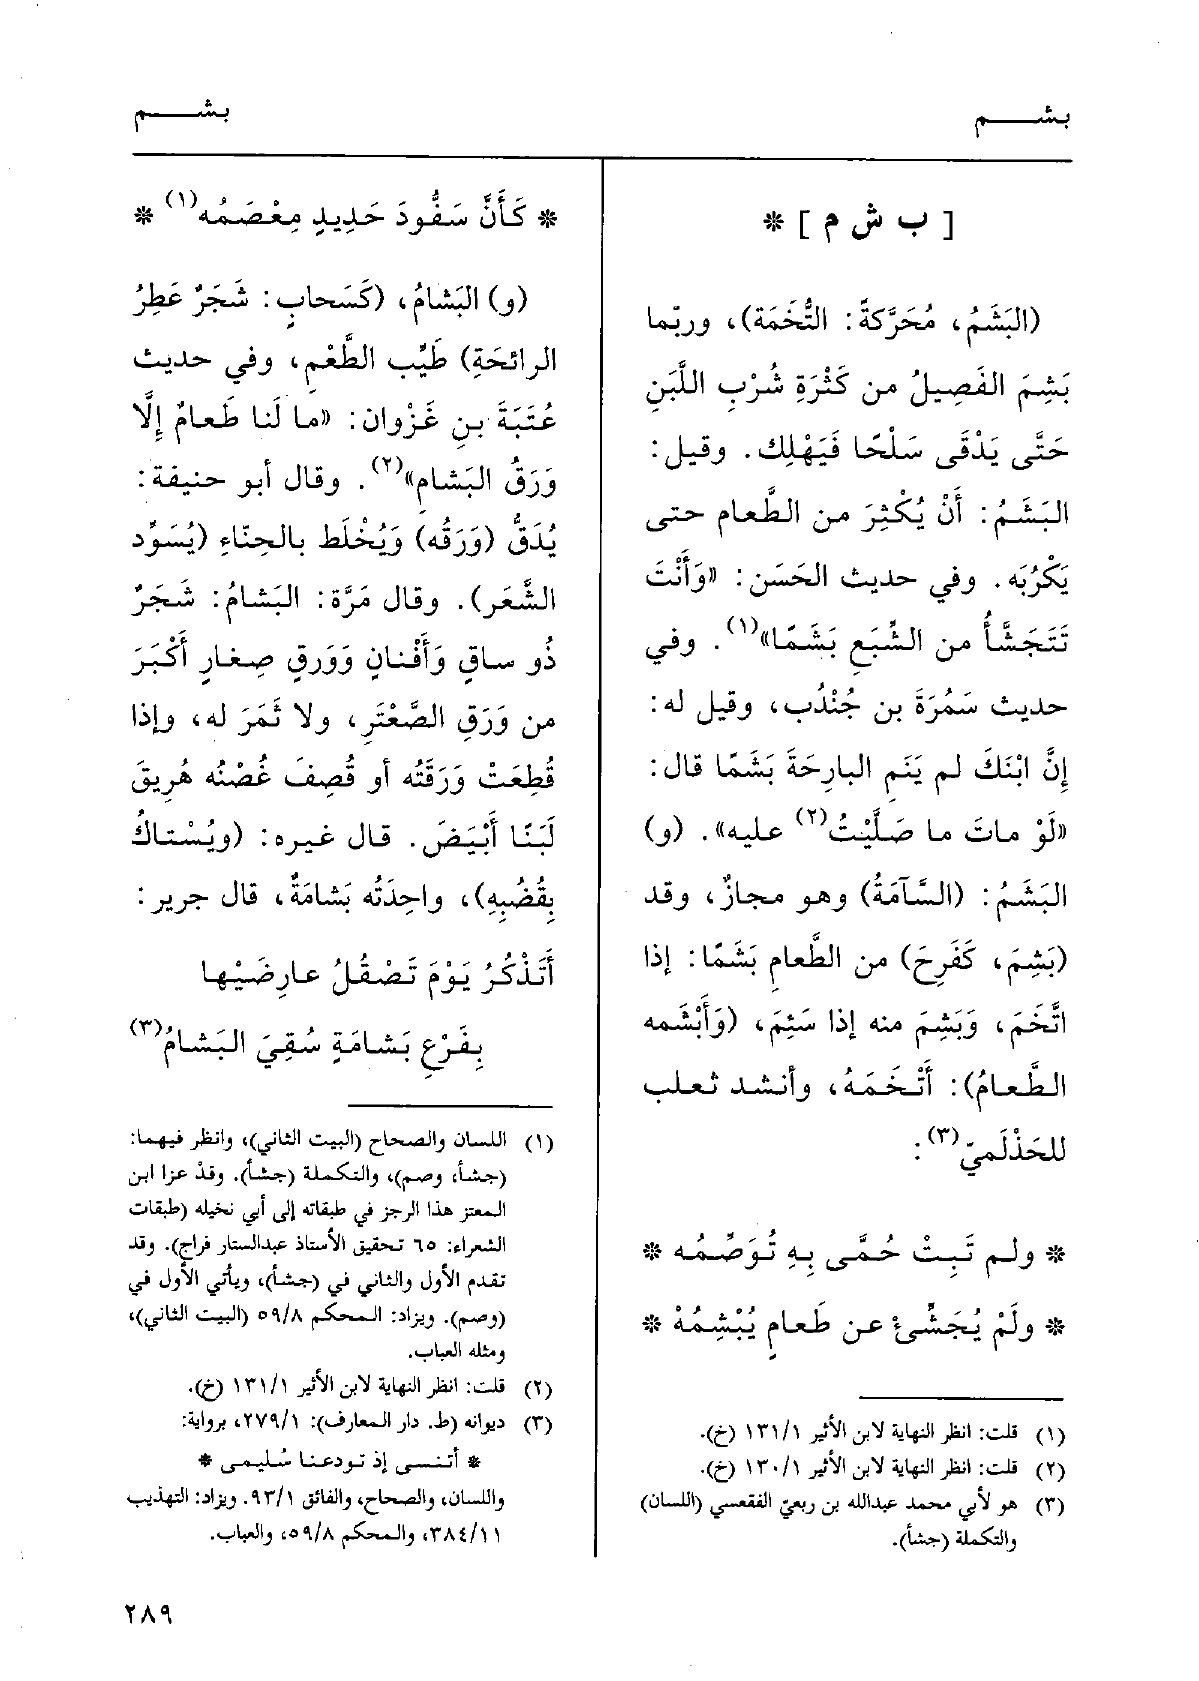 بشـــــم
بشـــــم
[ ب ش م ] *
(البَشَمُ، مُحَرَّكةً: التُّخَمَة)، وربّما
بَشِمَ الفَصِيلُ من كَثْرَةِ شُرْبِ اللَّبَنِ
حَتَّى يَدْقَى سَلْحًا فَيَهْلِك. وقيل:
البَشَمُ: أَنْ يُكْثِرَ من الطَّعام حتى
يَكْرُبَه. وفي حديث الحَسَن: «وَأَنْتَ
تَتَجَشَّأُ من الشِّبَعِ بَشَمًا»(١). وفي
حديث سَمُرَةَ بن جُنْدُب، وقيل له:
إِنَّ ابْنَكَ لم يَنَمِ البارِحَةَ بَشَمًا قال:
«لَوْ ماتَ ما صَلَّيْتُ(٢) عليه». (و)
البَشَمُ: (السَّآمَةُ) وهو مجازٌ، وقد
(بَشِمَ، كَفَرِحَ) من الطَّعامِ بَشَمًا: إذا
اتَّخَمَ، وَبَشِمَ منه إذا سَئِمَ، (وَأَبْشَمه
الطَّعامُ): أَتْخَمَهُ، وأنشد ثعلب
للحَذْلَمِيّ(٣):
* ولم تَبِتْ حُمَّى بِهِ تُوَصِّمُه *
* ولَمْ يُجَشِّئْ عن طَعامٍ يُبْشِمُهْ *
(١) قلت: انظر النهاية لابن الأثير ١٣١/١ (خ).
(٢) قلت: انظر النهاية لابن الأثير ١٣٠/١ (خ).
(٣) هو لأبي محمد عبدالله بن ربعيّ الفقعسي (اللسان)
والتكملة (جشأ).
* كَأَنَّ سَفُّودَ حَدِيدٍ مِعْصَمُه(١) *
(و) البَشامُ، (كَسَحابٍ: شَجَرٌ عَطِرُ
الرائحَةِ) طَيِّب الطَّعْمِ، وفي حديث
عُتبَةَ بنِ غَزْوان: «ما لَنا طَعامٌ إِلَّا
وَرَقُ البَشام»(٢). وقال أبو حنيفة:
يُدَقُّ (وَرَقُه) وَيُخْلَط بالحِنّاءِ (يُسَوِّد
الشَّعَر). وقال مَرَّة: البَشامُ: شَجَرٌ
ذُو ساقٍ وَأَفْنانٍ وَوَرَقٍ صِغارٍ أَكْبَرَ
من وَرَقِ الصَّعْتَرِ، ولا ثَمَرَ له، وإذا
قُطِعَتْ وَرَقَتُه أو قُصِفَ غُصْنُه هُرِيقَ
لَبَنًا أَبْيَضَ. قال غيره: (ويُسْتاكُ
بِقُضُبِهِ)، واحِدَتُه بَشامَةٌ، قال جرير:
أَتَذْكُرُ يَوْمَ تَصْقُلُ عارِضَيْها
بِفَرْعِ بَشامَةٍ سُقِيَ البَشامُ(٣)
(١) اللسان والصحاح (البيت الثاني)، وانظر فيهما:
(جشأ، وصم)، والتكملة (جشأ). وقد عزا ابن
المعتز هذا الرجز في طبقاته إلى أبي نخيله (طبقات
الشعراء: ٦٥ تحقيق الأستاذ عبدالستار فراج). وقد
تقدم الأول والثاني في (جشأ)، ويأتي الأول في
(وصم). ويزاد: المحكم ٥٩/٨ (البيت الثاني)،
ومثله العباب.
(٢) قلت: انظر النهاية لابن الأثير ١٣١/١ (خ).
(٣) ديوانه (ط. دار المعارف): ٢٧٩/١، برواية:
* أتنسى إذ تودعنا سُليمى *
واللسان، والصحاح، والفائق ٩٣/١. ويزاد: التهذيب
٣٨٤/١١، والمحكم ٥٩/٨، والعباب.
٢٨٩